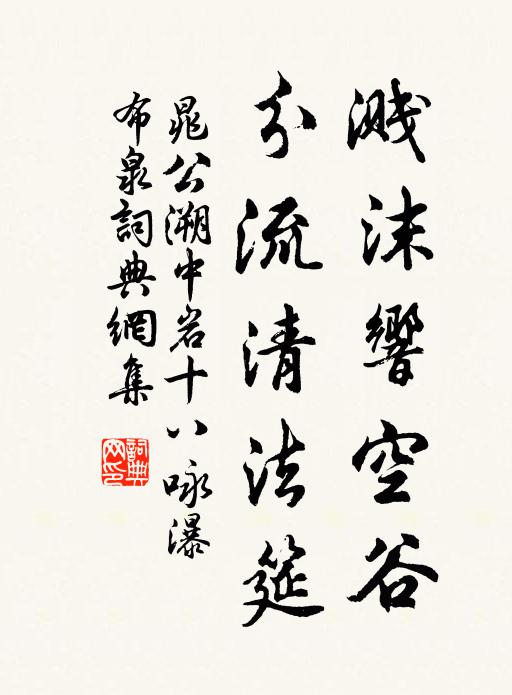 濺沫響空谷
分流清法筵
晁公溯中岩十八咏瀑
布泉詞典網集
詞典网印